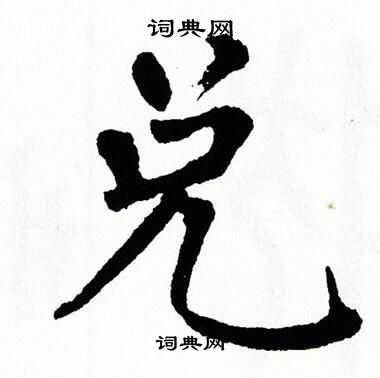 词典网
兑
词典网